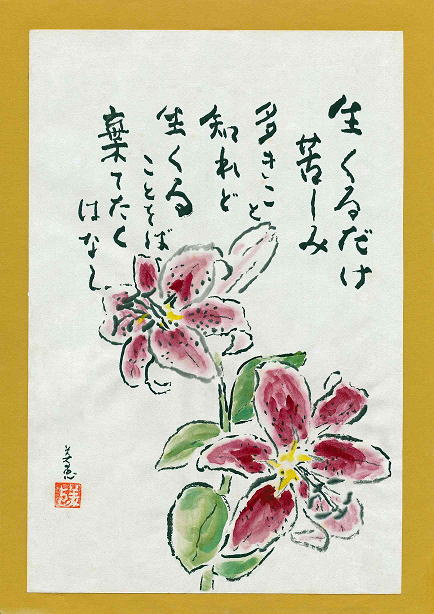 生くるだけ
苦しみ
多きこと
知れど
生くる
ことをば
棄てたく
はなし